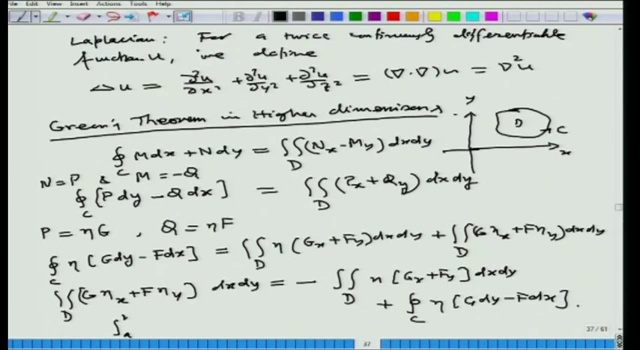 File Edit View Insert Actions Tools Help
Laplacian: For a twice continuously differentiable
function u, we define
Δu = ∂²u/∂x² + ∂²u/∂y² + ∂²u/∂z² = (∇·∇)u = ∇²u
Green's Theorem in Higher dimensions.
∮_C Mdx + Ndy = ∬_D (N_x - M_y) dxdy
y
D
C
x
N=P & M = -Q
∮_C [Pdy - Qdx] = ∬_D (P_x + Q_y) dxdy
P = ηG , Q = ηF
∮_C η [Gdy - Fdx] = ∬_D η (G_x + F_y) dxdy + ∬_D (Gη_x + Fη_y) dxdy
∬_D (Gη_x + Fη_y) dxdy = - ∬_D η [G_x + F_y] dxdy
+ ∮_C η [Gdy - Fdx].
∫_a
37 / 61
37